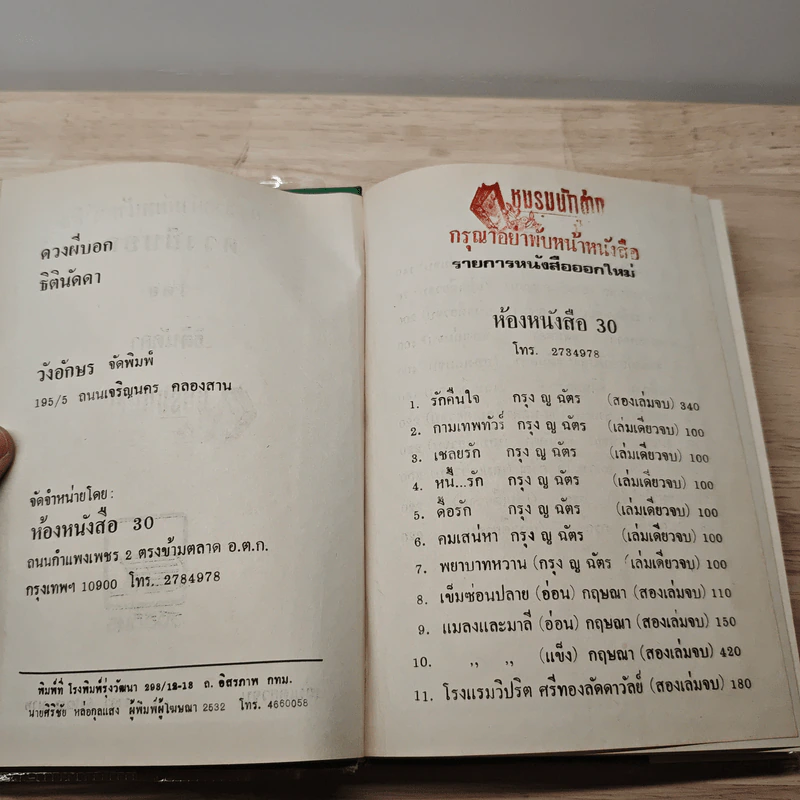 ดวงผีบอก
ธิตินัดดา
วังอักษร จัดพิมพ์
195/5 ถนนเจริญนคร คลองสาน
จัดจำหน่ายโดย:
ห้องหนังสือ 30
ถนนกำแพงเพชร 2 ตรงข้ามตลาด อ.ต.ก.
กรุงเทพฯ 10900 โทร. 2784978
พิมพ์ที่ โรงพิมพ์รุ่งวัฒนา 293/12-13 ถ. อิสรภาพ กทม.
นายศิริชัย หล่อกุลแสง ผู้พิมพ์ผู้โฆษณา 2532 โทร. 4660058
ชมรมนักอ่าน
กรุณาอย่าพับหน้าหนังสือ
รายการหนังสือออกใหม่
ห้องหนังสือ 30
โทร. 2734978
1. รักคืนใจ กรุง ญ ฉัตร (สองเล่มจบ) 340
2. กามเทพทัวร์ กรุง ญ ฉัตร (เล่มเดียวจบ) 100
3. เชลยรัก กรุง ญ ฉัตร (เล่มเดียวจบ) 100
4. หนี้...รัก กรุง ญ ฉัตร (เล่มเดียวจบ) 100
5. ดื้อรัก กรุง ญ ฉัตร (เล่มเดียวจบ) 100
6. คมเสน่หา กรุง ญ ฉัตร (เล่มเดียวจบ) 100
7. พยาบาทหวาน (กรุง ญ ฉัตร (เล่มเดียวจบ) 100
8. เข็มซ่อนปลาย (อ่อน) กฤษณา (สองเล่มจบ) 110
9. แมลงและมาลี (อ่อน) กฤษณา (สองเล่มจบ) 150
10. ,, ,, (แข็ง) กฤษณา (สองเล่มจบ) 420
11. โรงแรมวิปริต ศรีทองลัดดาวัลย์ (สองเล่มจบ) 180